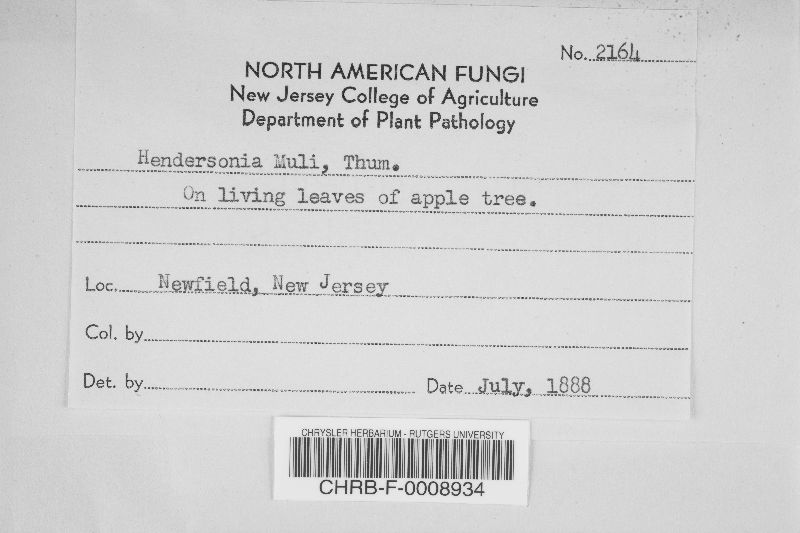 No. 2164
NORTH AMERICAN FUNGI
New Jersey College of Agriculture
Department of Plant Pathology
Hendersonia Muli, Thum.
On living leaves of apple tree.
Loc. Newfield, New Jersey
Col. by
Det. by Date July, 1888
CHRYSLER HERBARIUM - RUTGERS UNIVERSITY
CHRB-F-0008934